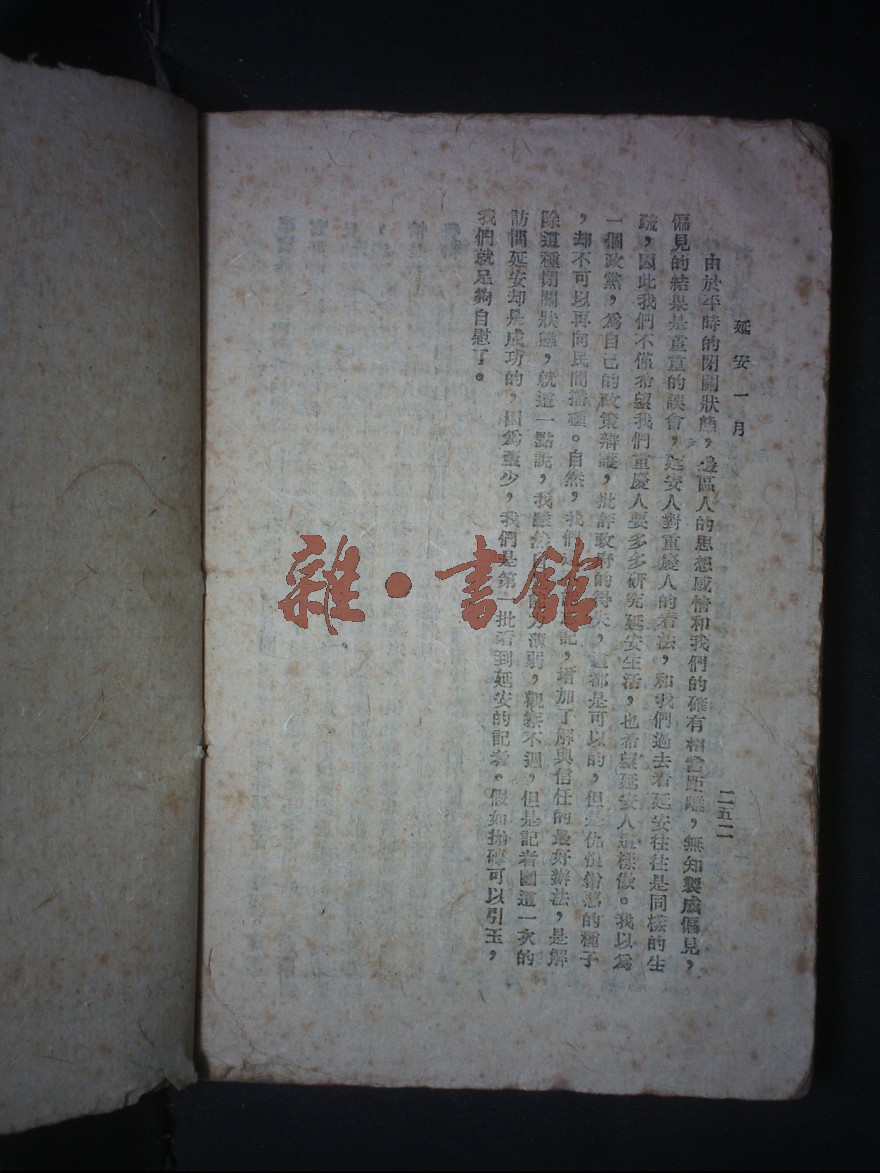 延安一月
二五二
由於平時的閉關狀態，邊區人的思想感情和我們的確有相當距離，無知製成偏見，
偏見的結果是重重的誤會，延安人對重慶人的看法，和我們過去看延安往往是同樣的生
疏，因此我們不僅希望我們重慶人要多多研究延安生活，也希望延安人這樣做。我以為
一個政黨，為自己的政策辯護，批評政府的得失，這都是可以的，但是仇恨的種子
，却不可以再向民間播種。自然，我們記，增加了解與信任的最好辦法，是解
除這種閉關狀態，就這一點說，我雖然薄弱，觀察不週，但是記者團這一次的
訪問延安却是成功的，因為至少，我們是第一批看到延安的記者。假如拋磚可以引玉，
我們就足夠自慰了。
雜·書館